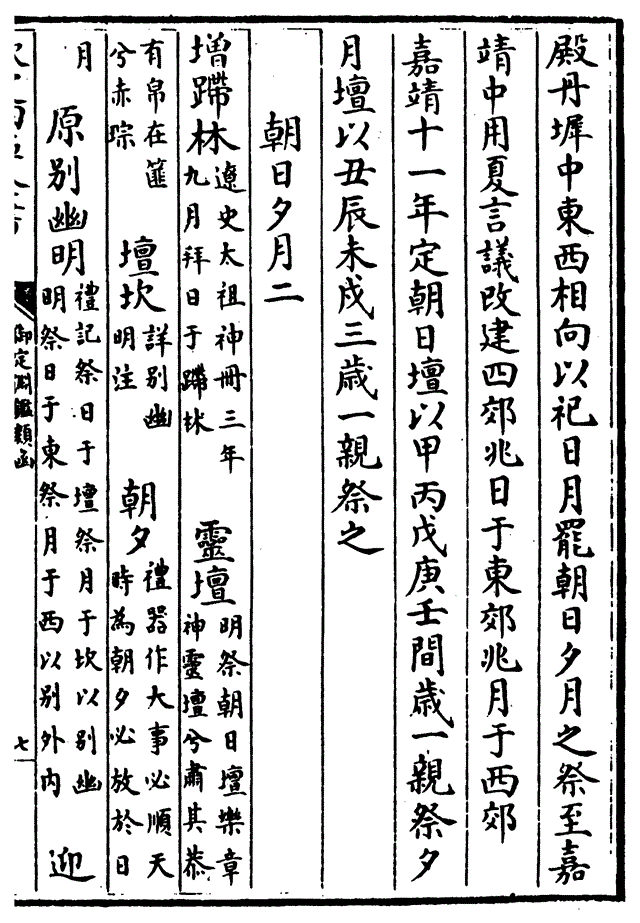 殿丹墀中東西相向以祀日月罷朝日夕月之祭至嘉
靖中用夏言議改建四郊兆日于東郊兆月于西郊
嘉靖十一年定朝日壇以甲丙戊庚壬間歳一親祭夕
月壇以丑辰未戌三歳一親祭之
朝日夕月二
増蹛林遼史太祖神冊三年九月拜日于蹛林 靈壇明祭朝日壇樂章神靈壇兮肅其恭
有帛在篚兮赤琮 壇坎詳别幽明注 朝夕禮器作大事必順天時為朝夕必放於日
月 原别幽明禮記祭日于壇祭月于坎以别幽明祭日于東祭月于西以别外内 迎
御定淵鑑類函
七